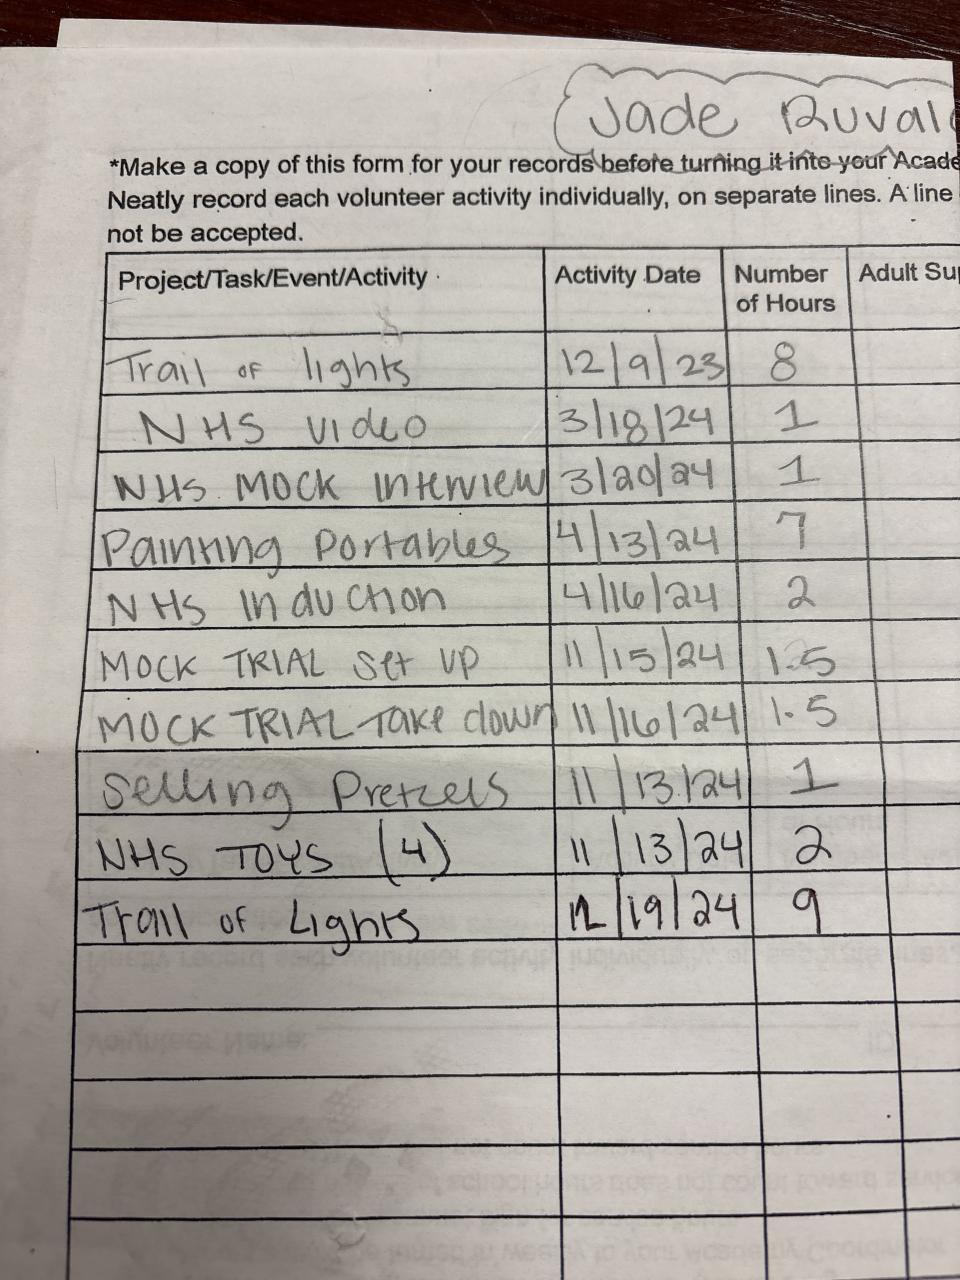 Jade Ruval
*Make a copy of this form for your records before turning it into your Acade
Neatly record each volunteer activity individually, on separate lines. A line
not be accepted.
Project/Task/Event/Activity Activity Date Number of Hours Adult Su
Trail of lights 12/9/23 8
NHS video 3/18/24 1
NHS MOCK Interview 3/20/24 1
Painting Portables 4/13/24 7
NHS Induction 4/16/24 2
MOCK TRIAL set up 11/15/24 1.5
MOCK TRIAL Take down 11/16/24 1.5
Selling Pretzels 11/13/24 1
NHS TOYS (4) 11/13/24 2
Trail of Lights 12/19/24 9